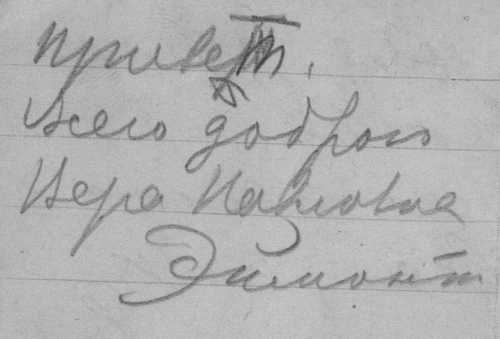 привет.
Всего доброго
Вера Павловна
Эймонт